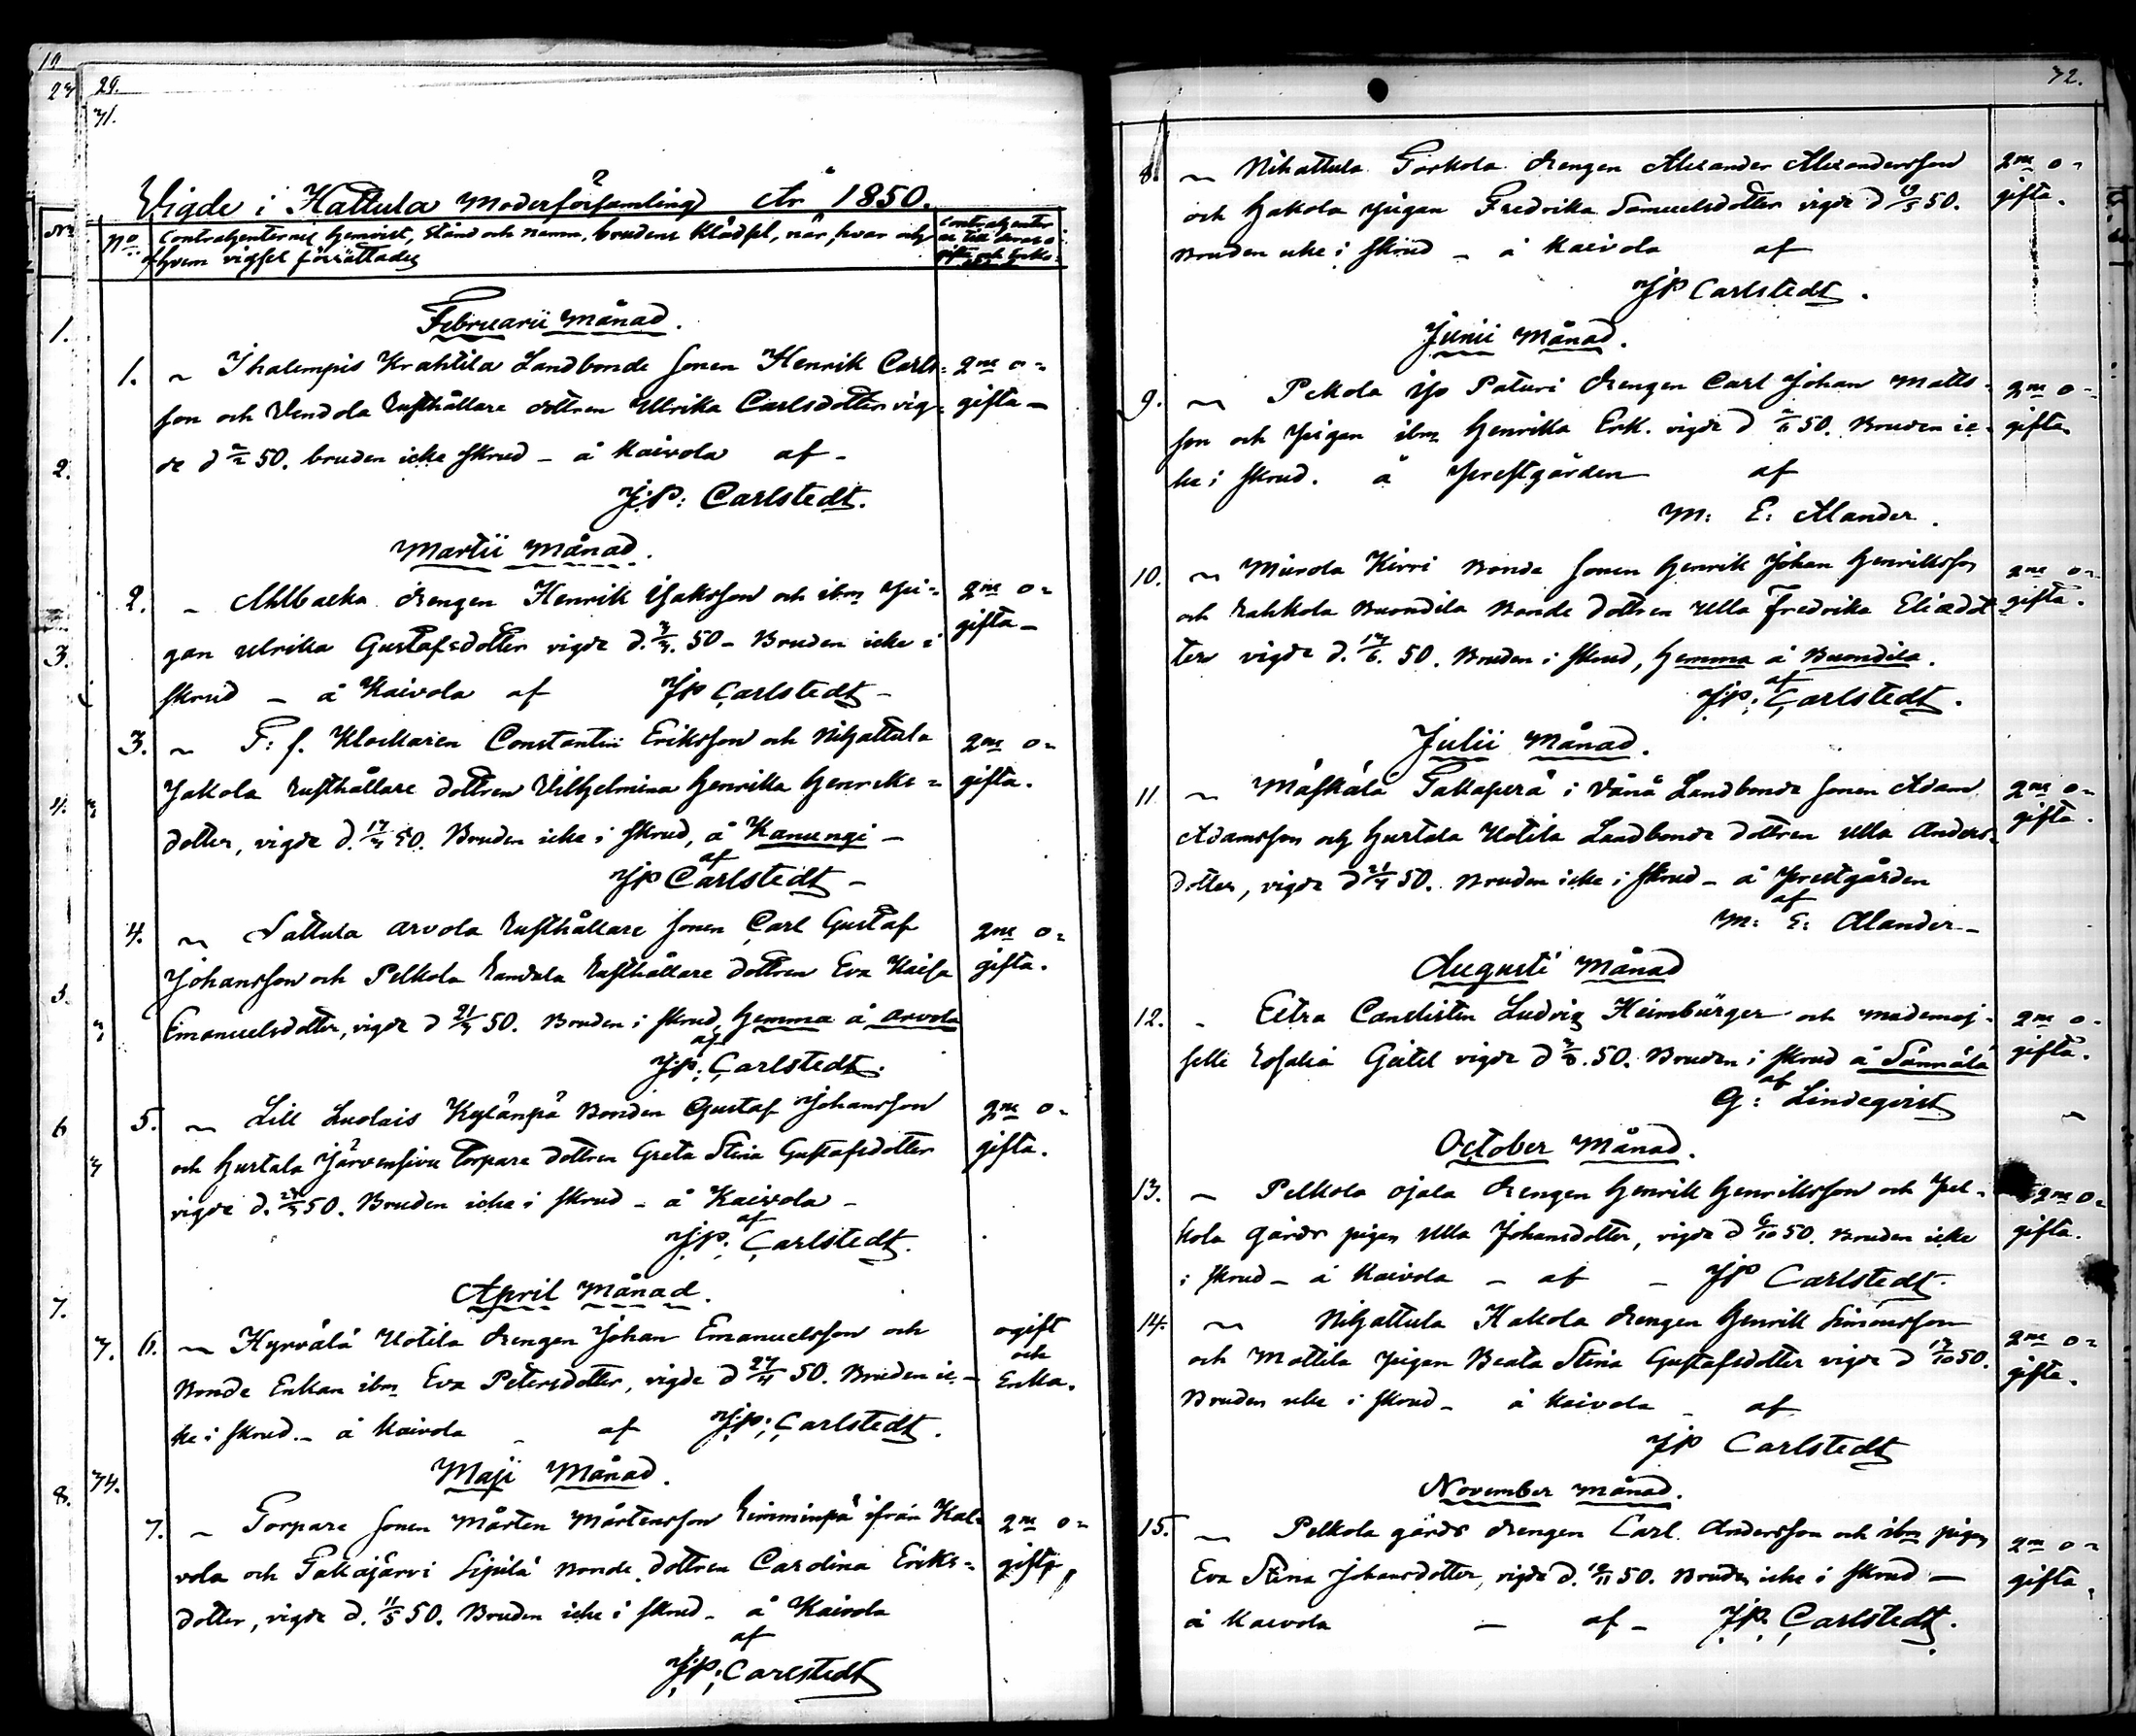 29.
71.
Vigde i Hattula Moderförsamling År 1850.
No Contrahenternes hemvist, stånd och namn, brudens klädsel, när, hvar och
af hvem vigsel förrättades
Contrahenter
Februarii Månad.
1. Ihalempis Krahtila Landbonde sonen Henrik Carls-
son och Vendola Rusthållare dottren Ulrika Carlsdotter vig-
de d 2/2 50. bruden icke skrud - å Kaivola af -
J.P: Carlstedt.
2ne o-
gifta -
Martii Månad.
2. Ahlbacka drengen Henrik Isaksson och ibm pi-
gan Ulrika Gustafsdotter vigde d. 50 - Bruden icke i
skrud - å Kaivola af JP Carlstedt -
2ne o-
gifta -
3. T: f. Klockaren Constantin Eriksson och Nihattula
Jakola Rusthållare dottren Vilhelmina Henrika Henriks-
dotter, vigde d. 17/3 50. Bruden icke i skrud, å Kanungi -
af
JP Carlstedt -
2ne o-
gifta.
4. Sattula Arvola Rusthållare sonen Carl Gustaf
Johansson och Pelkola Rusthållare dottren Eva Kaisa
Emanuelsdotter, vigde d 21/3 50. Bruden i skrud, hemma å Arvola
af
J.P. Carlstedt.
2ne o-
gifta.
5. Lill Luolais Kylänpä Bonden Gustaf Johansson
och Hurtala Järvensivu Torpare dottren Greta Stina Gustafsdotter
vigde d. 50. Bruden icke i skrud - å Kaivola -
af
J.P. Carlstedt.
2ne o-
gifta.
April Månad.
6. Hyrvälä Uotila drengen Johan Emanuelsson och
Bonde Enkan ibm Eva Petersdotter, vigde d 27/4 50. Bruden ic-
ke i skrud - å Kaivola af J.P. Carlstedt.
ogift
och
Enka.
Maji Månad.
7. Torpare sonen Mårten Mårtensson ifrån Kal-
vola och Takajärvi Sipilä Bonde dottren Carolina Eriks-
dotter, vigde d. 11/5 50. Bruden icke i skrud - å Kaivola
af
J.P. Carlstedt
2ne o-
gifta
72.
8. Nihattula Torkola drengen Alexander Alexandersson
och Hakola pigan Fredrika Samuelsdotter vigde d 19/5 50.
Bruden icke i skrud - å Kaivola af
JP Carlstedt.
2ne o-
gifta.
Junii Månad.
9. Pekola Paturi drengen Carl Johan Matts-
son och pigan ibm Henrika Erk. vigde d 50. Bruden ic-
ke i skrud. å Prestgården af
M: E: Alander.
2ne o-
gifta.
10. Mierola Kirri Bonde sonen Henrik Johan Henriksson
och Rahkola Buondila Bonde dottren Ulla Fredrika Eliædot-
ter vigde d. 17/6. 50. Bruden i skrud, hemma å Buondila.
af
J.P. Carlstedt.
2ne o-
gifta.
Julii Månad.
11 Mäskälä Takaperä i Vånå Landbonde sonen Adam
Adamsson och Hurtala Uotila Landbonde dottren Ulla Anders-
dotter, vigde d 21/7 50. Bruden icke i skrud - å Prestgården
af
M: E: Alander -
2ne o-
gifta.
Augusti Månad
12. Extra Canslisten Ludvig Heimbürger och mademoi-
selle Rosalia Gütel vigde d 50. Bruden i skrud å
af
G: Lindeqvist
2ne o-
gifta.
October Månad.
13. Pelkola Ojala drengen Henrik Henriksson och Pel-
kola gårds pigan Ulla Johansdotter, vigde d 6/10 50. Bruden icke
i skrud - å Kaivola - af - JP Carlstedt.
2ne o-
gifta.
14. Nihattula Hakola drengen Henrik Simonsson
och Mattila pigan Beata Stina Gustafsdotter vigde d 50.
Bruden icke i skrud - å Kaivola - af
JP Carlstedt
2ne o-
gifta.
November månad.
15. Pelkola gårds drengen Carl Andersson och ibm pigan
Eva Stina Johansdotter, vigde d. 50. Bruden icke i skrud -
å Kaivola - af - J.P. Carlstedt.
2ne o-
gifta.